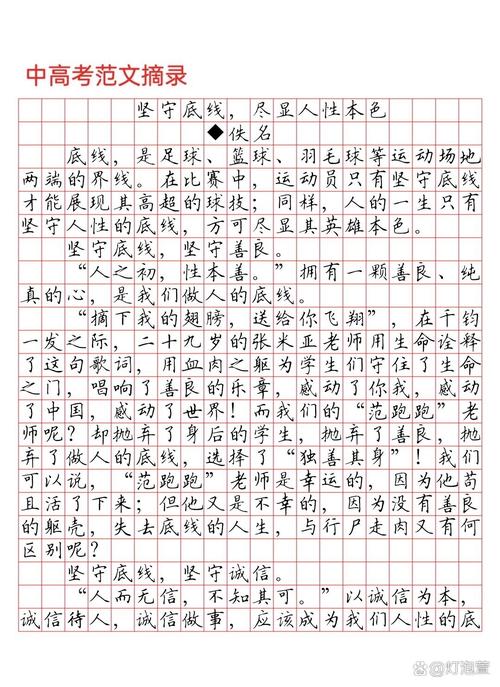 中高考范文摘录
坚守底线，尽显人性本色
◆佚名
底线，是足球、篮球、羽毛球等运动场地
两端的界线。在比赛中，运动员只有坚守底线
才能展现其高超的球技；同样，人的一生只有
坚守人性的底线，方可尽显其英雄本色。
坚守底线，坚守善良。
“人之初，性本善。”拥有一颗善良、纯
真的心，是我们做人的底线。
“摘下我的翅膀，送给你飞翔”，在千钧
一发之际，二十九岁的张米亚老师用生命诠释
了这句歌词，用血肉之躯为学生们守住了生命
之门，唱响了善良的乐章，感动了你我，感动
了中国，感动了世界！而我们的“范跑跑”老
师呢？却抛弃了身后的学生，抛弃了善良，抛
弃了做人的底线，选择了“独善其身”！我们
可以说，“范跑跑”老师是幸运的，因为他苟
且活了下来；但他又是不幸的，因为没有善良
的躯壳，失去底线的人生，与行尸走肉又有何
区别呢？
坚守底线，坚守诚信。
“人而无信，不知其可。”以诚信为本，
诚信待人，诚信做事，应该成为我们人性的底
@灯泡萱